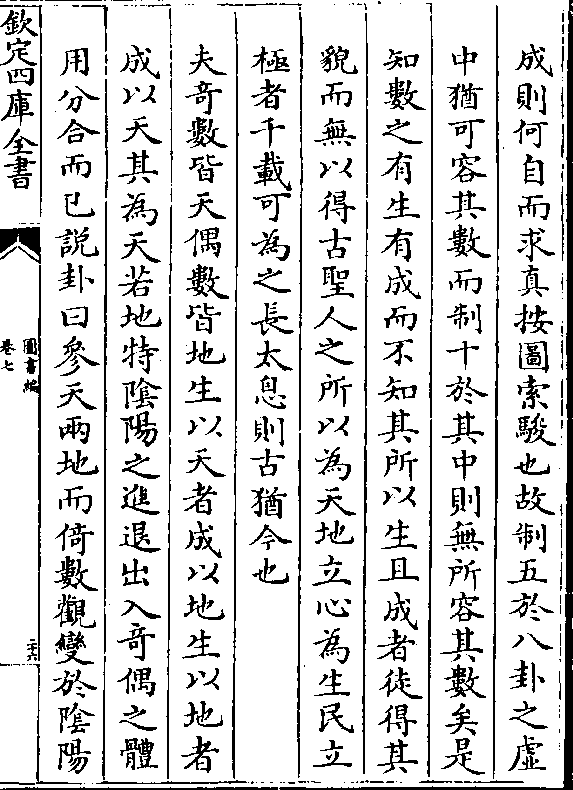 成則何自而求真按圖索駿也故制五於八卦之虛
中猶可容其數而制十於其中則無所容其數矣是
知數之有生有成而不知其所以生且成者徒得其
貌而無以得古聖人之所以為天地立心為生民立
極者千載可為之長太息則古猶今也
夫竒數皆天偶數皆地生以天者成以地生以地者
成以天其為天若地特陰陽之進退出入竒偶之體
用分合而已說卦曰參天兩地而倚數觀變於陰陽
欽定四庫全書
圖書編
卷七
二十六